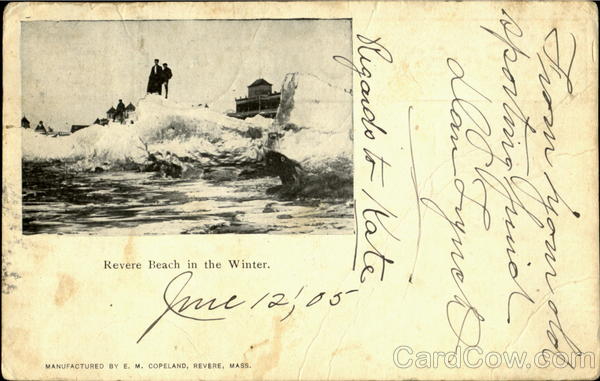 Revere Beach in the Winter.
June 12', 05
MANUFACTURED BY E. M. COPELAND, REVERE, MASS.
Regards to Kate
From your old
sporting friend
CardCow.com